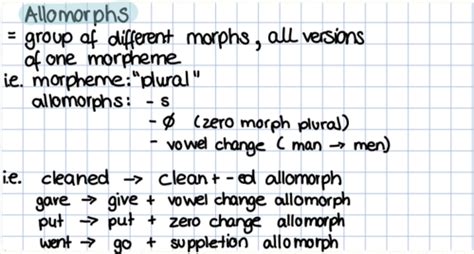 Allomorphs
= group of different morphs, all versions
of one morpheme
i.e. morpheme: "plural"
allomorphs: - s
- ∅ (zero morph plural)
- vowel change (man → men)
i.e. cleaned → clean + -ed allomorph
gave → give + vowel change allomorph
put → put + zero change allomorph
went → go + suppletion allomorph